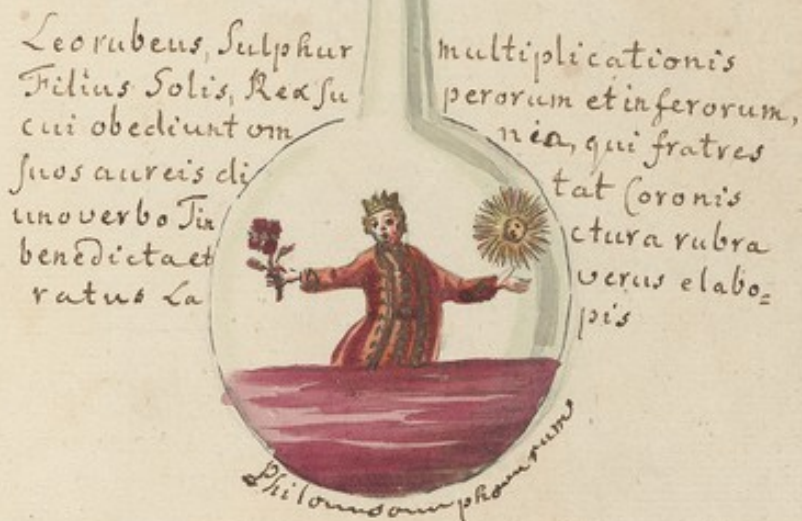 Leo rubeus, Sulphur multiplicationis
Filius Solis, Rex su perorum et inferorum,
cui obediunt om nia, qui fratres
suos aureis di tat Coronis
uno verbo Tin ctura rubra
benedicta et verus elabo=
ratus La pis